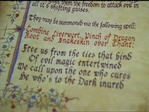 them the freedom to attack evil in
all it's shifting guises.
They may be summoned via the following spell:
Combine Feverwort, Pinch of Dragon
Root and Snakeskin over Chant:
Free us from the ties that bind
Of evil magic entertwined
We call upon the one who cures
He who's to the Dark inured